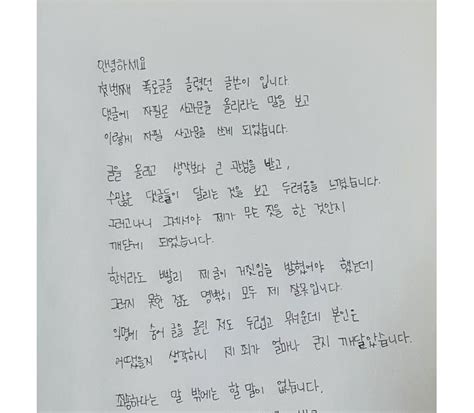 안녕하세요
첫번째 폭로글을 올렸던 글쓴이 입니다
댓글에 자필로 사과문을 올리라는 말을 보고
이렇게 자필 사과문을 쓰게 되었습니다.
글을 올리고 생각보다 큰 관심을 받고,
수많은 댓글들이 달리는 것을 보고 두려움을 느꼈습니다.
그러고나니 그제서야 제가 무슨 짓을 한 것인지
깨닫게 되었습니다.
한시라도 빨리 제 글이 거짓임을 밝혔어야 했는데
그러지 못한 점도 명백히 모두 제 잘못입니다.
익명에 숨어 글을 올린 저도 두렵고 무서운데 본인은
어땠을지 생각하니 제 죄가 얼마나 큰지 깨달았습니다.
죄송하다는 말 밖에는 할 말이 없습니다.